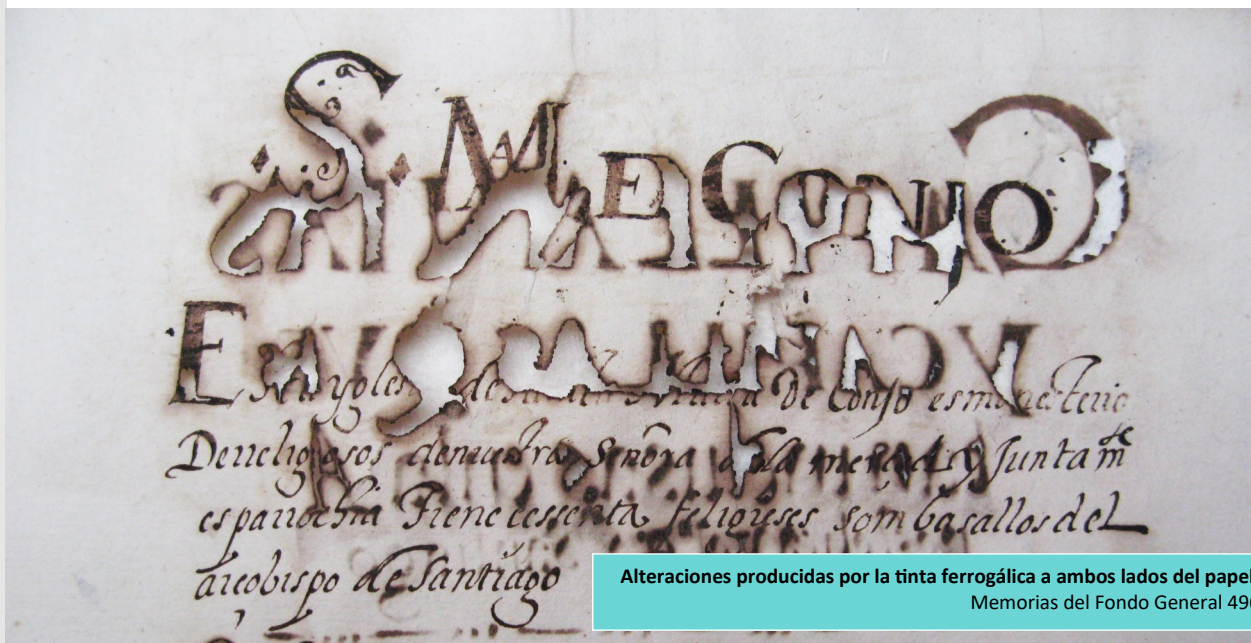 S. M. DE CONJO
de Conjo es monesterio
De religiosos de nuestra señora de la merced y Juntam te
es parrochia Tiene sessenta feligreses som basallos del
arcobispo de Santiago
Alteraciones producidas por la tinta ferrogálica a ambos lados del papel
Memorias del Fondo General 490